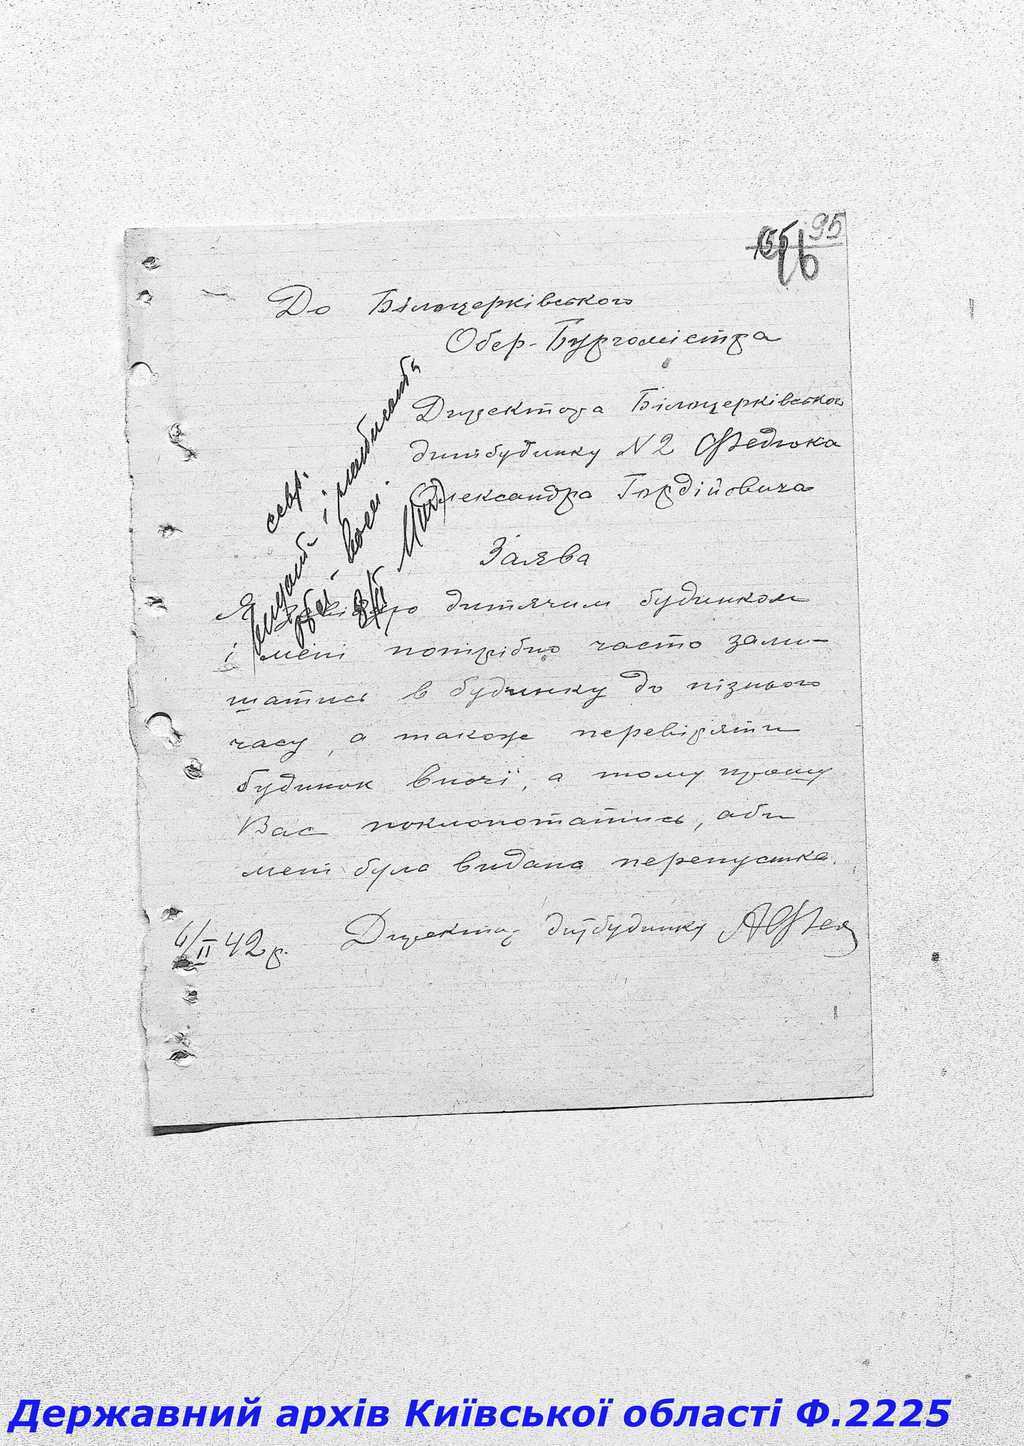 95
96
До Білоцерківського
Обер-Бургомістра
Директора Білоцерківськог
дитбудинку N 2 Федюка
Олександра Гордійовича
Заява
Я керую дитячим будинком
і мені потрібно часто зали-
шатись в будинку до пізнього
часу, а також перевіряти
будинок вночі, а тому прошу
Вас поклопотатись, аби
мені була видана перепустка.
6/II 42 р. Директор дитбудинку
секр.
8/II
Державний архів Київської області Ф.2225